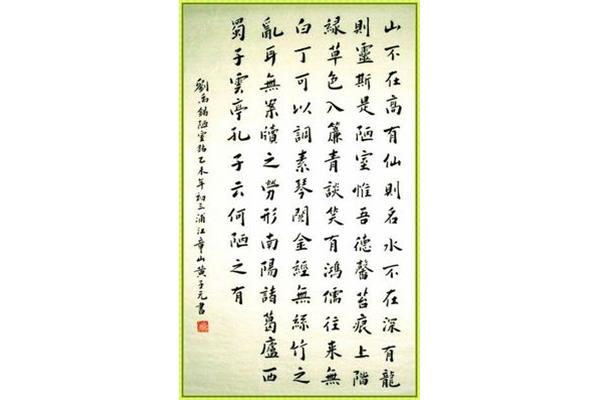 山不在高有仙則名水不在深有龍
則靈斯是陋室惟吾德馨苔痕上階
緑草色入簾青談笑有鴻儒往来無
白丁可以調素琴閱金經無絲竹之
亂耳無案牘之勞形南陽諸葛廬西
蜀子雲亭孔子云何陋之有
劉禹錫陋室銘乙未年初三浦江章山黄子元書